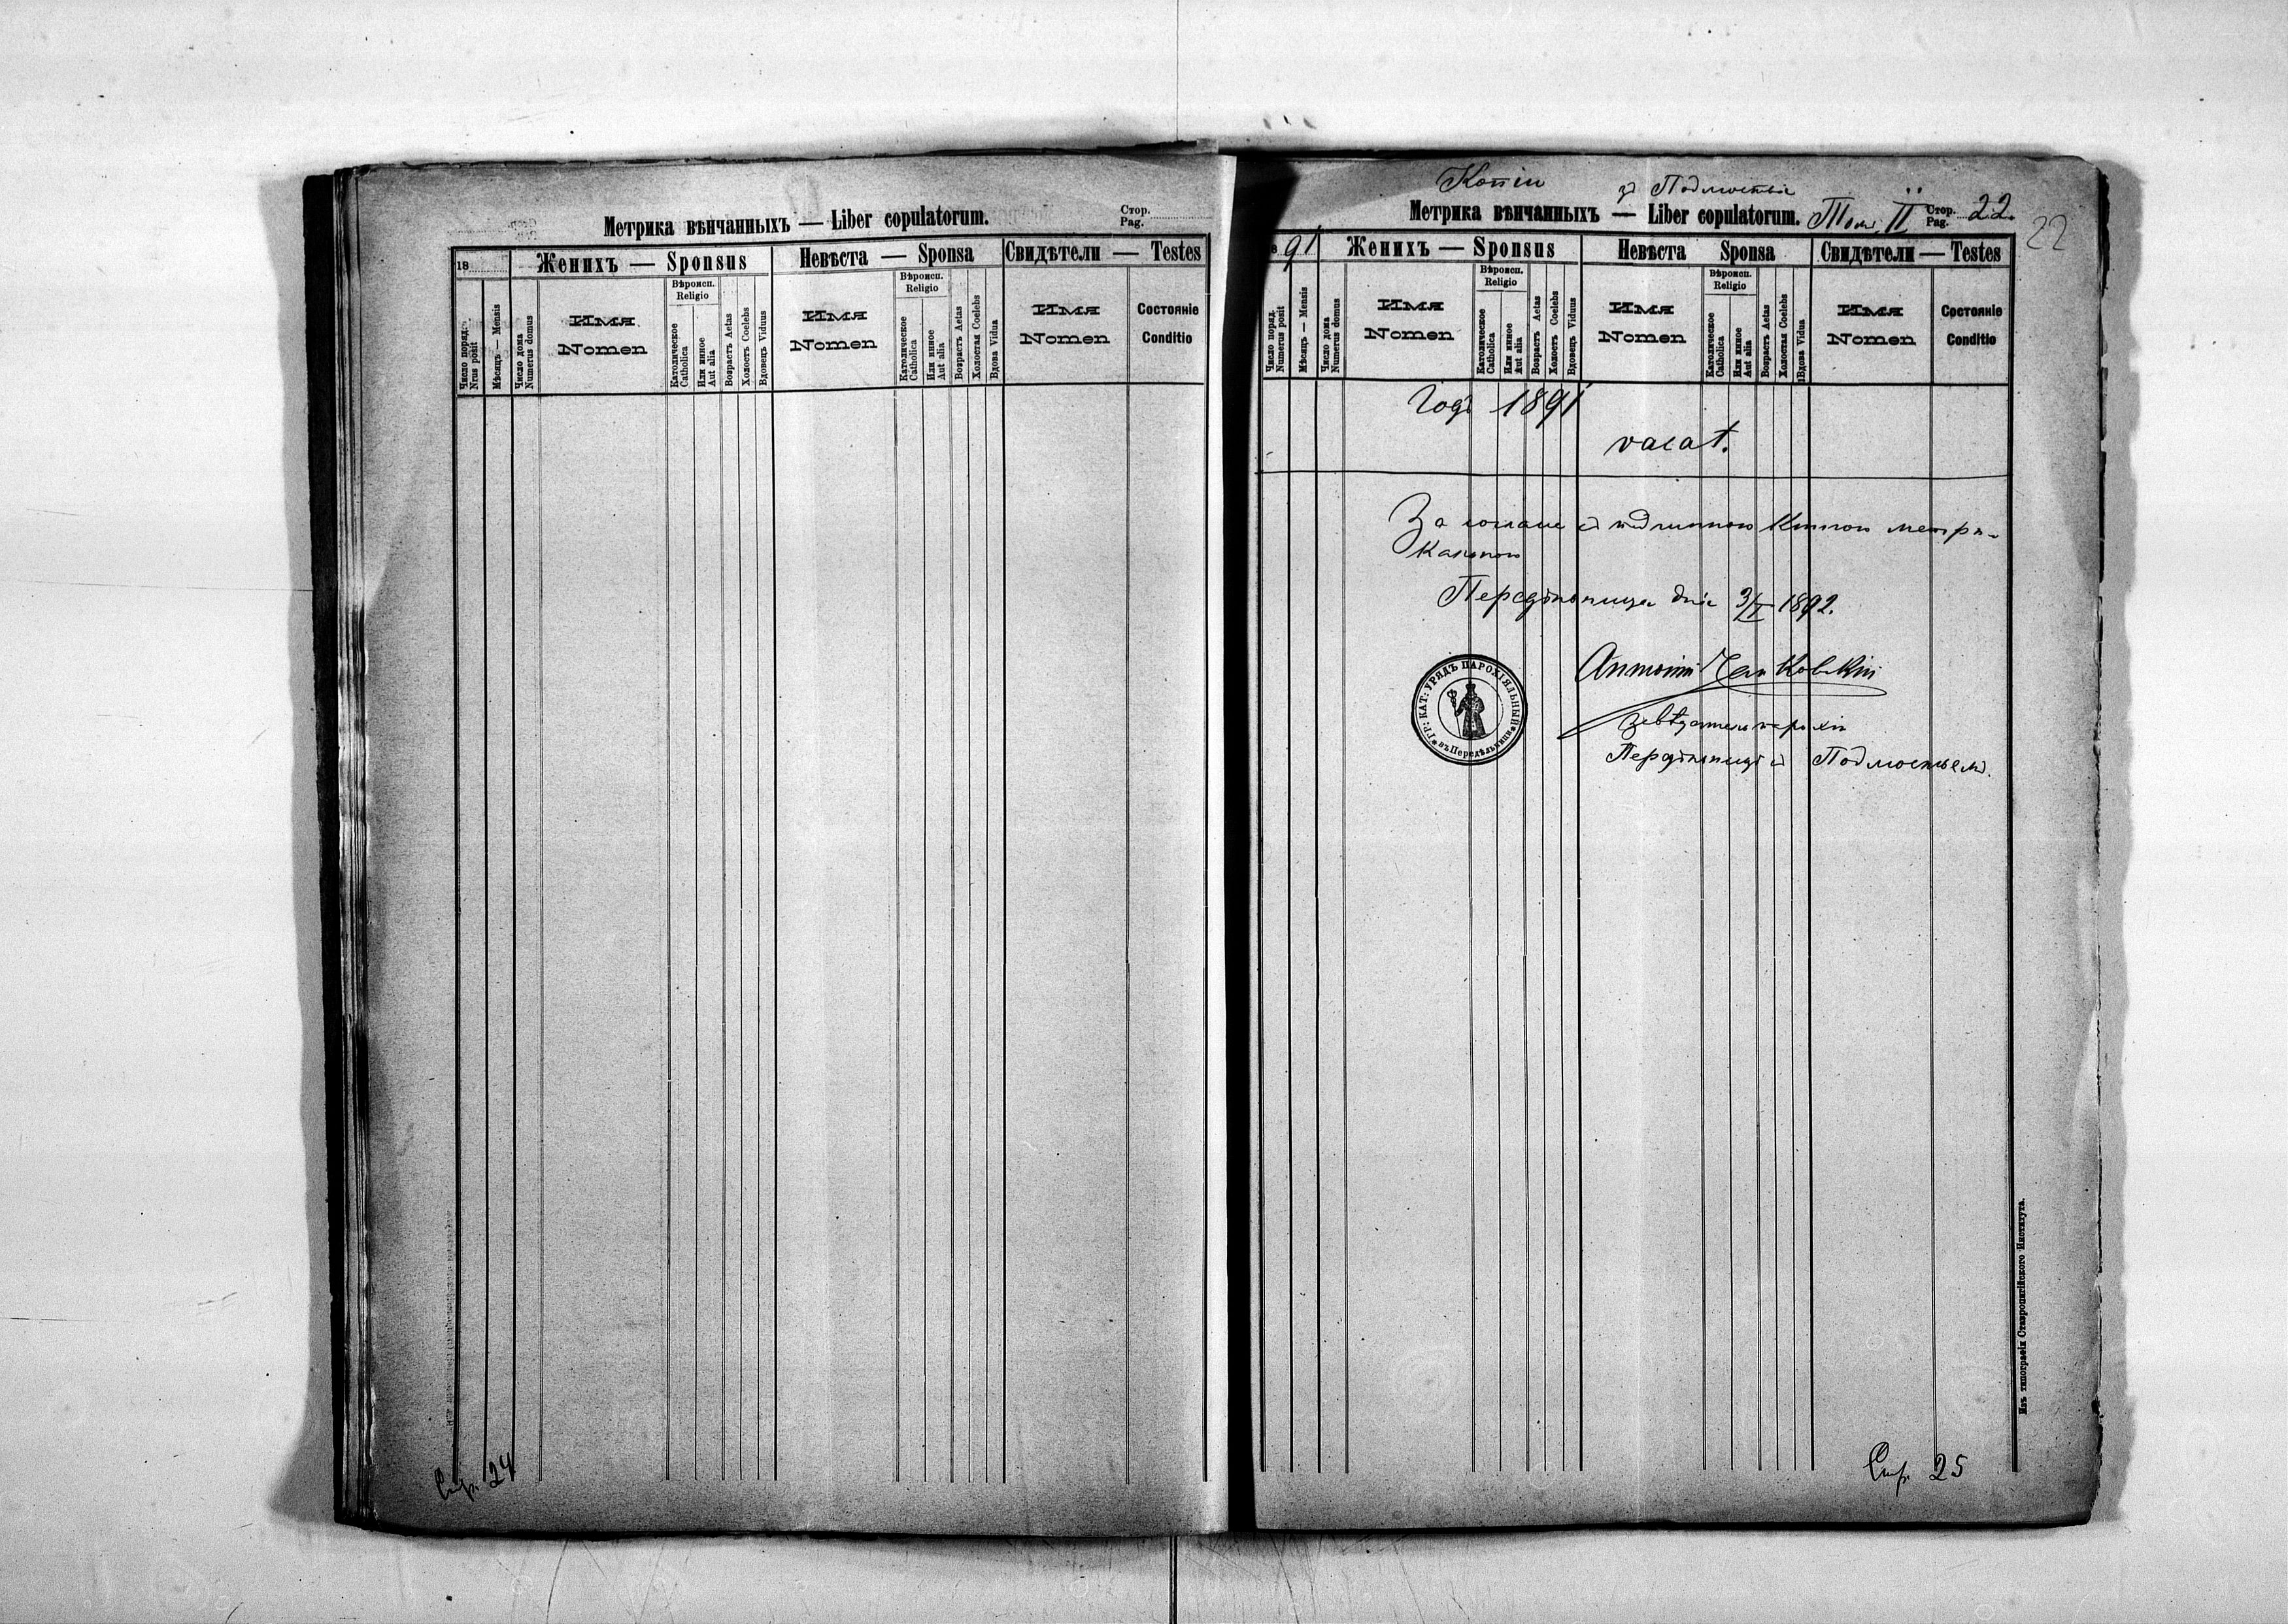 Метрика вѣнчанныхъ — Liber copulatorum.
Стор.
Pag.
18
Женихъ — Sponsus
Невѣста — Sponsa
Свидѣтели — Testes
Число поряд.
Nrus posit
Мѣсяцъ — Mensis
Число дома
Numerus domus
Имя
Nomen
Вѣроисп.
Religio
Католическое
Catholica
Или иное
Aut alia
Возрастъ Aetas
Холостъ Coelebs
Вдовецъ Viduus
Имя
Nomen
Вѣроисп.
Religio
Католическое
Catholica
Или иное
Aut alia
Возрастъ Aetas
Холостая Coelebs
Вдова Vidua
Имя
Nomen
Состоянiе
Conditio
Стр. 24
Копiи зъ Подмостья
Метрика вѣнчанныхъ — Liber copulatorum. Томъ II
Стор.
Pag.
22.
22
91
Женихъ — Sponsus
Невѣста Sponsa
Свидѣтели — Testes
Число поряд.
Numerus posit
Мѣсяцъ — Mensis
Число дома
Numerus domus
Имя
Nomen
Вѣроисп.
Religio
Католическое
Catholica
Или иное
Aut alia
Возрастъ Aetas
Холостъ Coelebs
Вдовецъ Viduus
Имя
Nomen
Вѣроисп.
Religio
Католическое
Catholica
Или иное
Aut alia
Возрастъ Aetas
Холостая Coelebs
Вдова Vidua
Имя
Nomen
Состоянiе
Conditio
Годъ 1891
vacat.
За съ книгою метри-
кальною
Передѣльница дня 3/I 1892.
ГР: КАТ: УРЯДЪ ПАРОХIЯЛЬНЫЙ
въ Передѣльници
Антонiй
завѣдатель парохiи
Передѣльницѣ съ Подмостьемъ.
Изъ типографiи Ставропигiйского Института.
Стр. 25